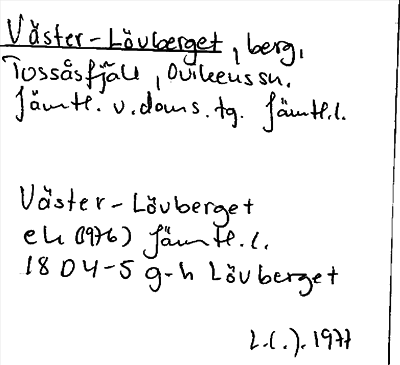 Väster-Lövberget, berg,
Tossåsfjäll, Ovikens sn.
Jämtl. v. doms. tg. Jämtl. l.
Väster-Lövberget
ek (1976) Jämtl. l.
18 D 4-5 g-h Lövberget
L.(.). 1977